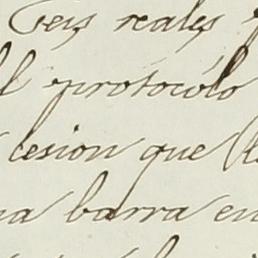 seis reales
protocólo
cesion que
barra en